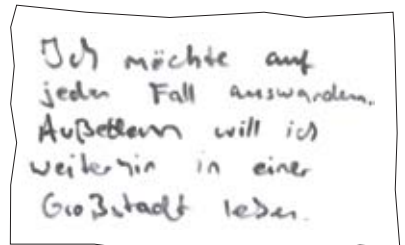 Ich möchte auf
jeden Fall auswandern.
Außerdem will ich
weiterhin in einer
Großstadt leben.